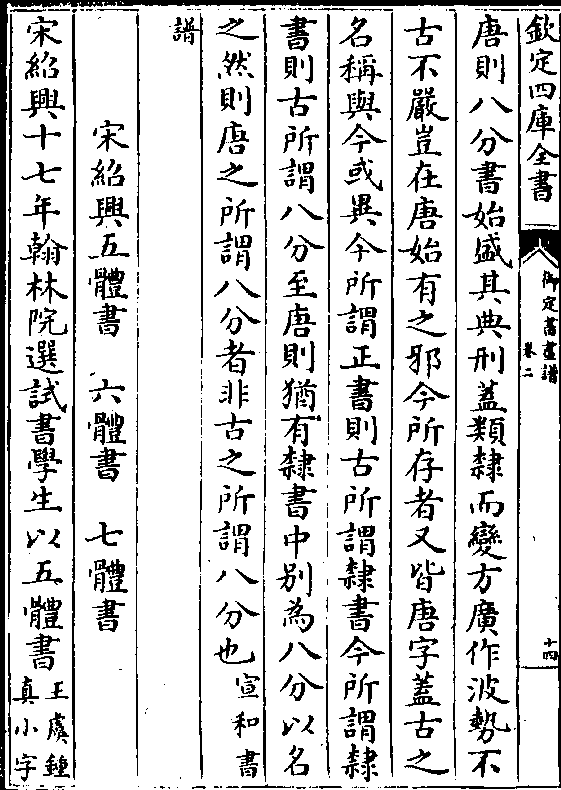 欽定四庫全書
御定書畫譜
卷二
十四
唐則八分書始盛其典刑蓋類隸而變方廣作波勢不
古不嚴豈在唐始有之邪今所存者又皆唐字蓋古之
名稱與今或異今所謂正書則古所謂隸書今所謂隸
書則古所謂八分至唐則猶有隸書中別為八分以名
之然則唐之所謂八分者非古之所謂八分也宣和書
譜
宋紹興五體書 六體書 七體書
宋紹興十七年翰林院選試書學生以五體書王虞鍾
真小字